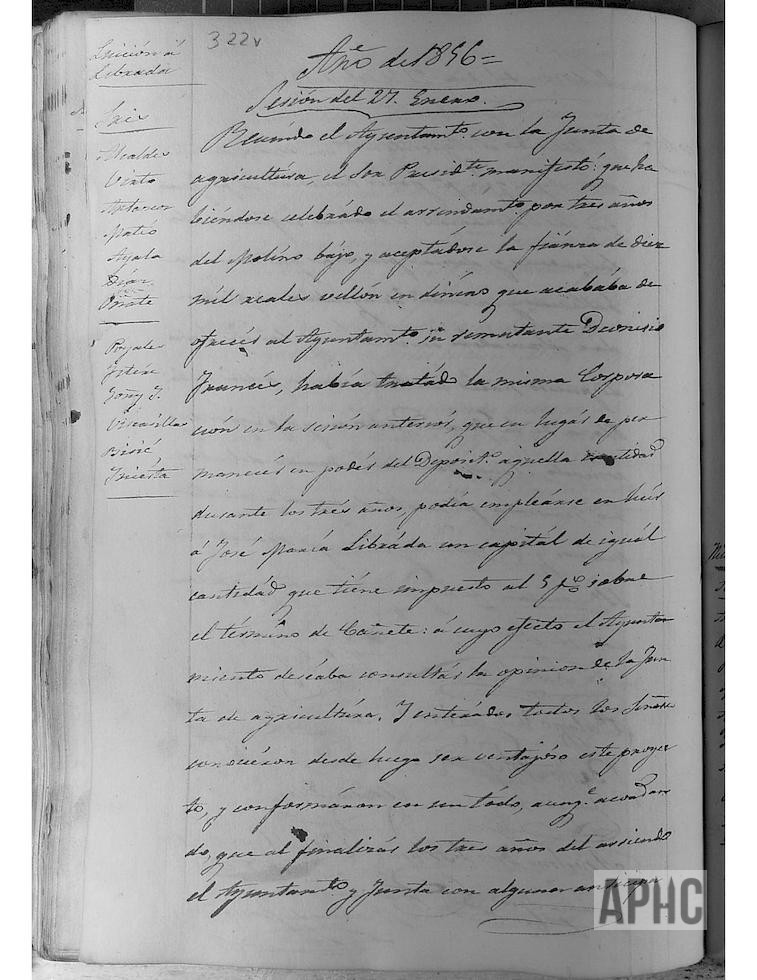 322v
Año de 1856=
Sesión del 27. Enero.
Luición á
Librada
Sres
Alcalde
Mateo
Ayala
Díaz
Oñate
Reunido el Ayuntamto. con la Junta de
agricultúra, el Sor Presidte. manifestó: que ha
biéndose celebrádo el arrindámto. por tres años
del Molíno bájo, y aceptádose la fiánza de diez
mil reales vellón en dinéro que acabába de
ofrecér al Ayuntamto. su rematante Deonisio
Francés, había tratádo la misma Corpora
ción en la sesión anteriór, que en lugár de per
manecér en podér del Deposito. aquella cantidad
durante los tres años, podía empleárse en luír
á José María Libráda un capitál de iguál
cantidad que tiéne impuesto al 5 p% sobre
el término de Cañete: á cuyo efecto el Ayunta
miento deséaba consultár la opinion de la Jun
ta de agricultúra. I enterádos todos los Señores
conociéron desde luego ser ventajóso este proyec
to, y conformáron en un tódo, aunqe. acordan
do, que al finalizár los tres años del arriendo
el Ayuntamto. y Junta con alguna anticipa
APHC